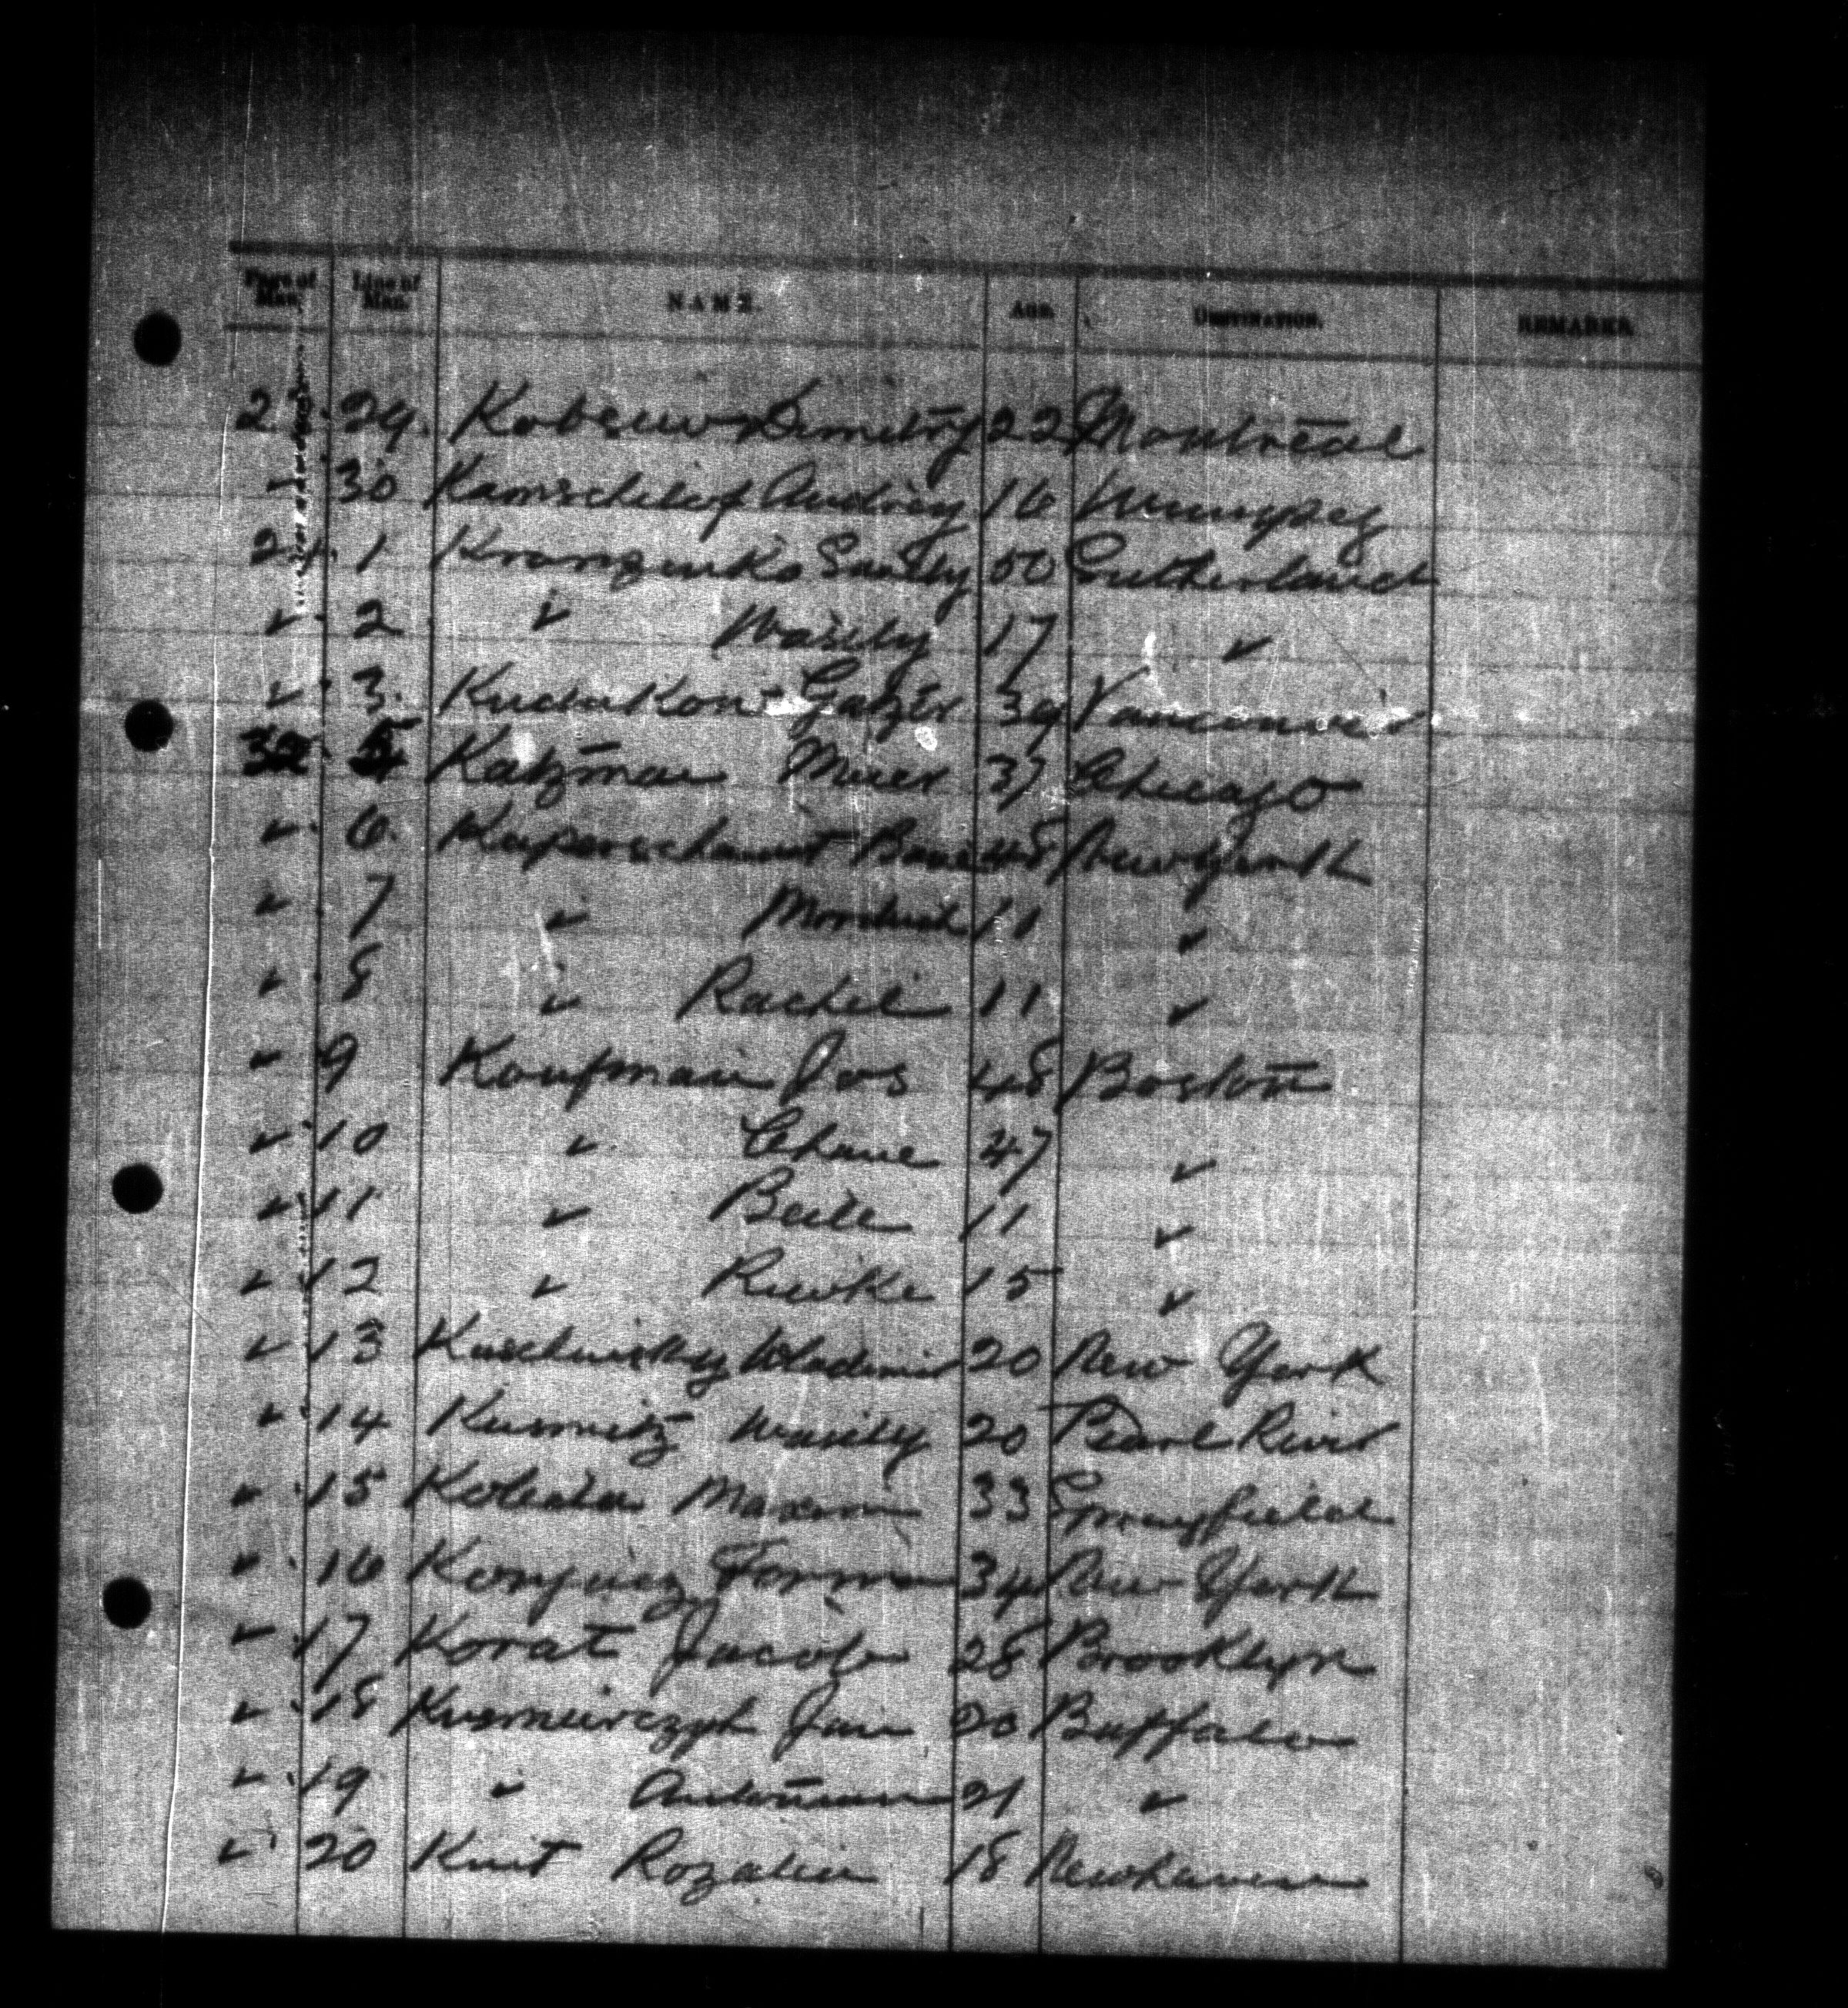 Page of Man. Line of Man. NAME. AGE. DESTINATION. REMARKS.
23. 29. Dimitry 22 Montreal
✓ 30 Kamschilof Andrey 16 Winnipeg
24. 1 50 Sutherland
✓ 2 ✓ Wasily 17 ✓
✓ 3. 39 Vancouver
32. 5 Katzman Meier 37 Chicago
✓ 6. 48 New York
✓ 7 ✓ 11 ✓
✓ 8 ✓ Rachel 11 ✓
✓ 9 Koufman Jos 48 Boston
✓ 10 ✓ Chane 47 ✓
✓ 11 ✓ Beile 11 ✓
✓ 12 ✓ Riwke 15 ✓
✓ 13 Wladimir 20 New York
✓ 14 Kusmitz Wasily 20 Pearl River
✓ 15 Maxim 33 Springfield
✓ 16 34 New York
✓ 17 Korat Jacob 28 Brooklyn
✓ 18 Jan 20 Buffalo
✓ 19 ✓ 21 ✓
✓ 20 Knit Rozalia 18 Newhaven